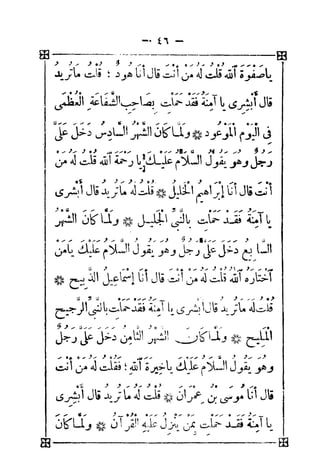 — ٤٦ —
ياصَفْوَةَ اللهِ قُلْتُ لَهُ مَنْ أَنْتَ قَالَ أَنَا هُودٌ ؛ قُلْتُ مَاتُرِيدُ
قَالَ أَبْشِرِى يَا آمِنَةُ فَقَدْ حَمَلْتِ بِصَاحِبِ الشَّفَاعَةِ الْعُظْمَى
فِى الْيَوْمِ الْمَوْعُودِ * وَلَمَّا كَانَ الشَّهْرُ السَّادِسُ دَخَلَ عَلَىَّ
رَجُلٌ وَهُوَ يَقُولُ السَّلَامُ عَلَيْكَ يَا رَحْمَةَ اللهِ قُلْتُ لَهُ مَنْ
أَنْتَ قَالَ أَنَا إِبْرَاهِيمُ الْخَلِيلُ * قُلْتُ لَهُ مَاتُرِيدُ قَالَ أَبْشِرِى
يَا آمِنَةُ فَقَدْ حَمَلْتِ بِالنَّبِىِّ الْجَلِيلِ * وَلَمَّا كَانَ الشَّهْرُ
السَّابِعُ دَخَلَ عَلَىَّ رَجُلٌ وَهُوَ يَقُولُ السَّلَامُ عَلَيْكَ يَامَنْ
اخْتَارَهُ اللهُ قُلْتُ لَهُ مَنْ أَنْتَ قَالَ أَنَا إِسْمَاعِيلُ الذَّبِيحُ *
قُلْتُ لَهُ مَاتُرِيدُ قَالَ ابْشِرِى يَا آمِنَةُ فَقَدْ حَمَلْتِ بِالنَّبِىِّ الرَّجِيحِ
الْمَلِيحِ * وَلَمَّا كَانَ الشَّهْرُ الثَّامِنُ دَخَلَ عَلَىَّ رَجُلٌ
وَهُوَ يَقُولُ السَّلَامُ عَلَيْكَ يَاخِيرَةَ اللهِ ؛ فَقُلْتُ لَهُ مَنْ أَنْتَ
قَالَ أَنَا مُوسَى بْنُ عِمْرَانَ * قُلْتُ لَهُ مَاتُرِيدُ قَالَ أَبْشِرِى
يَا آمِنَةُ فَقَدْ حَمَلْتِ بِمَنْ يَنْزِلُ عَلَيْهِ الْقُرْآنُ * وَلَمَّا كَانَ